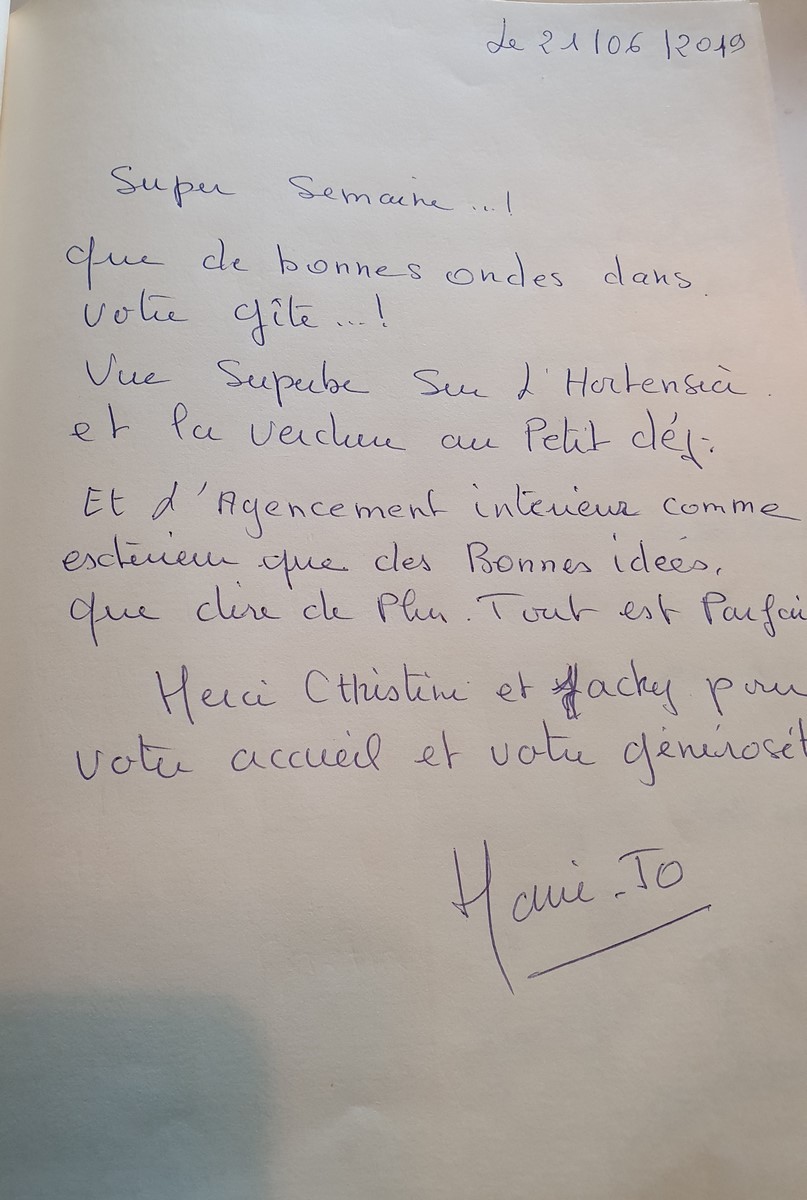 Le 21/06/2019
Super Semaine...!
que de bonnes ondes dans
votre gîte...!
Vue Superbe Sur L'Hortensia
et la verdure au Petit déj.
Et L'Agencement intérieur comme
extérieur que des Bonnes idées,
que dire de Plus. Tout est Parfai
Merci Christine et Jacky pour
votre accueil et votre générosit
Marie-JO